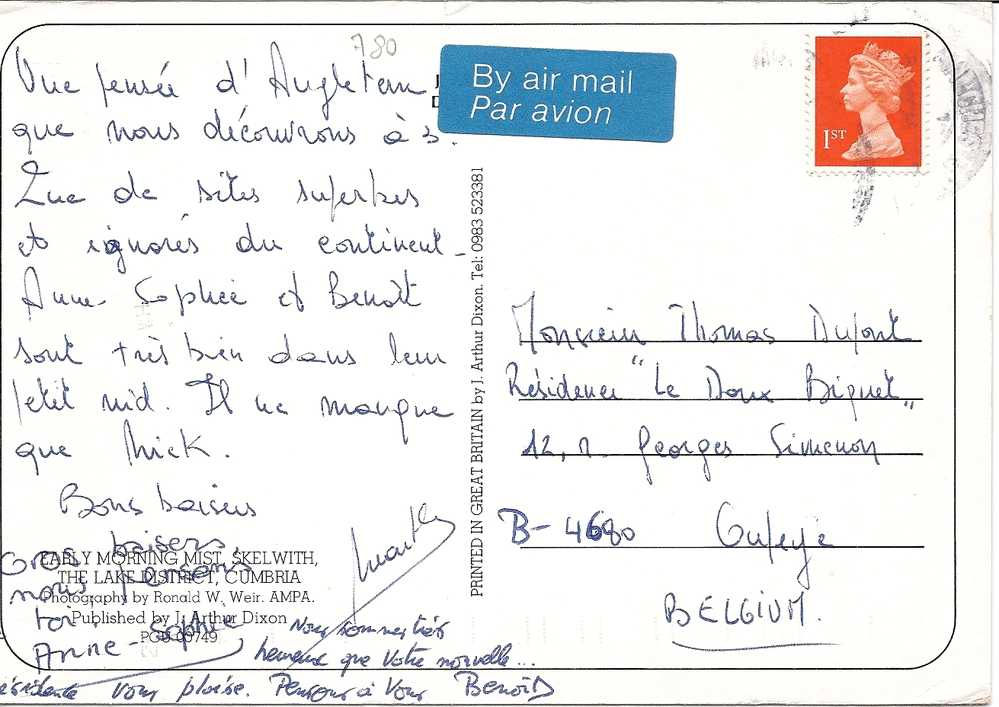 780
Une pensée d'Angleterre
que nous découvrons à 3.
Que de sites superbes
et ignorés du continent.
Anne-Sophie et Benoît
sont très bien dans leur
petit nid. Il ne manque
que Mick.
Bons baisers
Gros baisers
nous pensons
toi
Anne-Sophie
Nous sommes très
heureux que votre nouvelle...
résidente vous plaise. Pensons à Vous Benoît
EARLY MORNING MIST, SKELWITH,
THE LAKE DISTRICT, CUMBRIA
Photography by Ronald W. Weir. AMPA.
Published by J. Arthur Dixon
PRINTED IN GREAT BRITAIN by J. Arthur Dixon. Tel: 0983 523381
By air mail
Par avion
1ST
Monsieur Thomas Dupont
Résidence "Le Doux Biquet"
12, r. Georges Simenon
B-4680 Oupeye
BELGIUM.